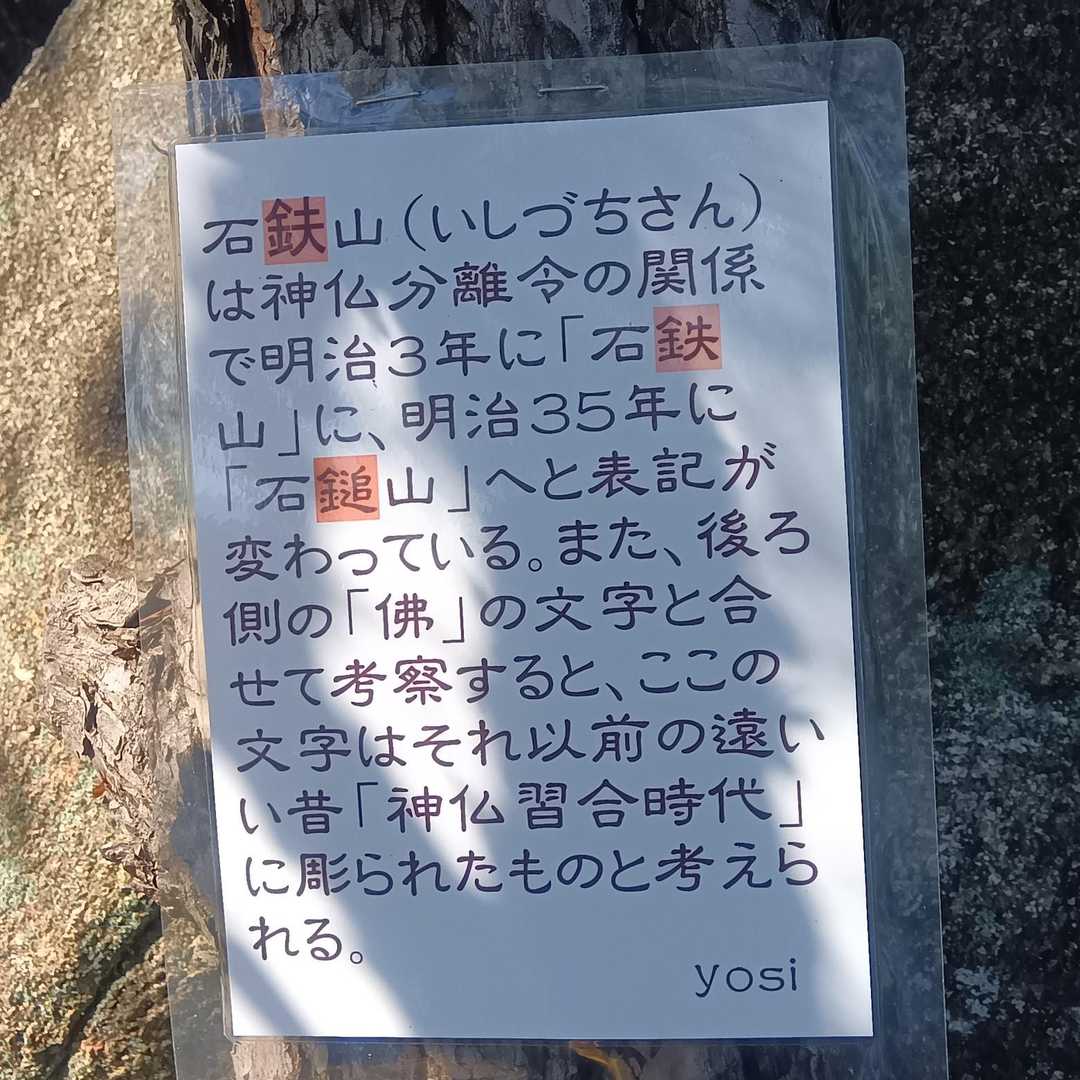 石鈇山（いしづちさん）
は神仏分離令の関係
で明治3年に「石鉄
山」に、明治35年に
「石鎚山」へと表記が
変わっている。また、後ろ
側の「佛」の文字と合
せて考察すると、ここの
文字はそれ以前の遠い
い昔「神仏習合時代」
に彫られたものと考えら
れる。
yosi